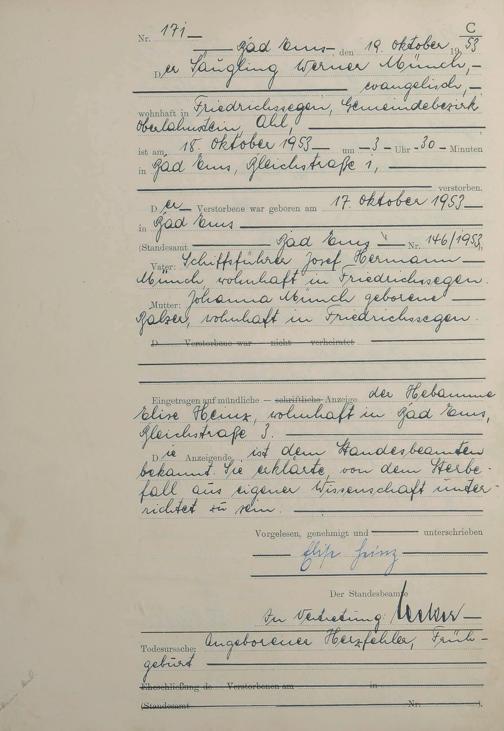 C
Nr. 171
Bad Ems, den 19. Oktober 1953
Der Säugling Werner Münch,
evangelisch,
wohnhaft in Friedrichssegen, Gemeindebezirk
Oberlahnstein, Ahl,
ist am 18. Oktober 1953 um 3 Uhr 30 Minuten
in Bad Ems, Gleichstraße 1,
verstorben.
Der Verstorbene war geboren am 17. Oktober 1953
in Bad Ems
(Standesamt Bad Ems Nr. 146/1953)
Vater: Schiffsführer Josef Hermann
Münch, wohnhaft in Friedrichssegen.
Mutter: Johanna Münch geborene
Balser, wohnhaft in Friedrichssegen.
D Verstorbene war nicht verheiratet
Eingetragen auf mündliche — schriftliche Anzeige der Hebamme
Elise Heinz, wohnhaft in Bad Ems,
Gleichstraße 3.
Die Anzeigende ist dem Standesbeamten
bekannt. Sie erklärte, von dem Sterbe-
fall aus eigener Wissenschaft unter-
richtet zu sein.
Vorgelesen, genehmigt und unterschrieben
Elise Heinz
Der Standesbeamte
In Vertretung:
Todesursache: Angeborener Herzfehler, Früh-
geburt
Eheschließung de Verstorbenen am in
(Standesamt Nr. ).